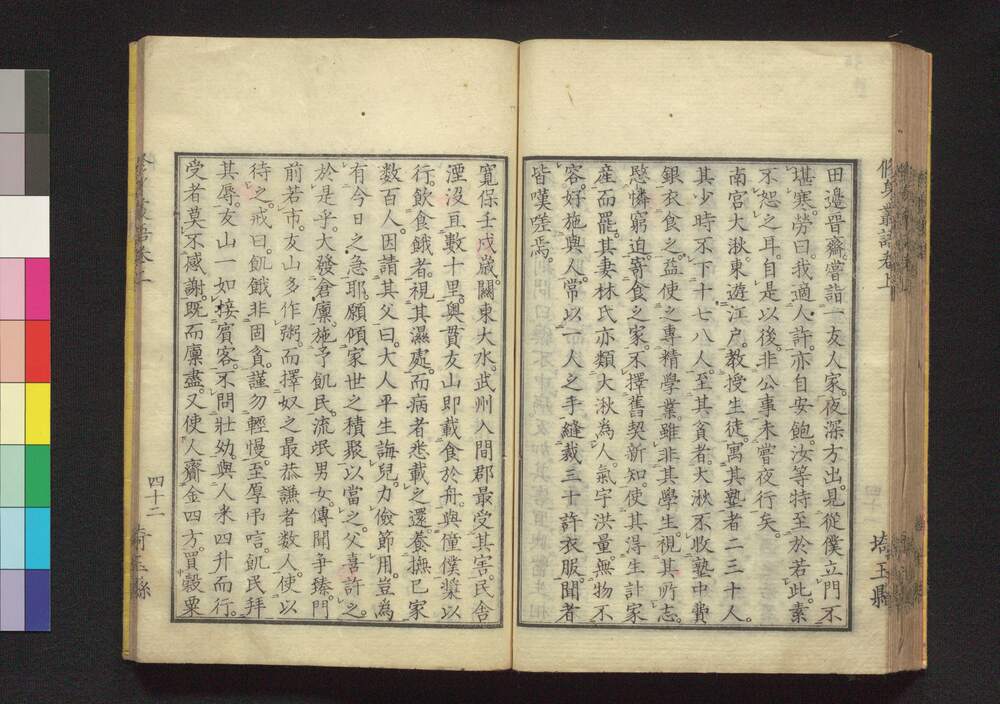 修身叢語卷上
埼玉縣
田邊晉齋嘗詣一友人家。夜深方出。見從僕立門不
堪寒。勞曰。我適人許。亦自安飽。汝等特至於若此。素
不恕之耳。自是以後。非公事未嘗夜行矣。
南宮大湫。東遊江戶。教授生徒。寓其塾者二三十人。
其少時不下十七八人。至其貧者。大湫不收塾中費
銀衣食之。益使之專精學業。雖非其學生。視其所志。
愍憐窮迫。寄食之家。不擇舊契新知。使其得生計家
產而罷。其妻林氏亦類大湫為人。氣宇洪量。無物不
容。好施與人。常以一人之手縫裁三十許衣服。聞者
皆嘆嗟焉。
寬保壬戌歲。關東大水。武州入間郡最受其害。民舍
湮沒亘數十里。奧貫友山即載食於舟。與僮僕槳以
行。飲食餓者。視其濕處。而病者悉載之還。養撫已家
數百人。因請其父曰。大人平生誨兒。力儉節用。豈為
有今日之急耶。願傾家世之積聚以當之。父喜許之。
於是乎大發倉廩。施予飢民。流氓男女。傳聞爭臻。門
前若市。友山多作粥。而擇奴之最恭謙者数人。使以
待之。戒曰。飢餓非固貧。謹勿輕慢。至厚弔唁。飢民拜
其辱。友山一如接賓客。不問壯幼。與人米四升而行。
受者莫不感謝。既而廩盡。又使人齎金四方。買穀粟
四十二